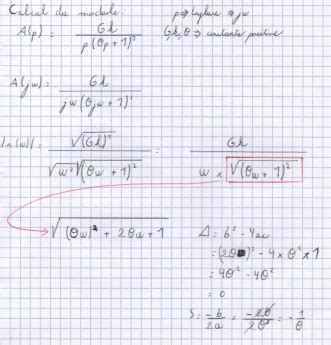 Calcul du module
p => laplace => jw
A(p) = Gk / p(θp+1)²
G,k,θ => constante positive
A(jw) = Gk / jw(θjw+1)²
|A(w)| = √(Gk)² / √w² √(θw+1)² = Gk / w × √(θw+1)²
√(θw)² + 2θw + 1
Δ = b² - 4ac
= (2θ)² - 4 × θ² × 1
= 4θ² - 4θ²
= 0
S = -b / 2a = -2θ / 2θ² = -1 / θ